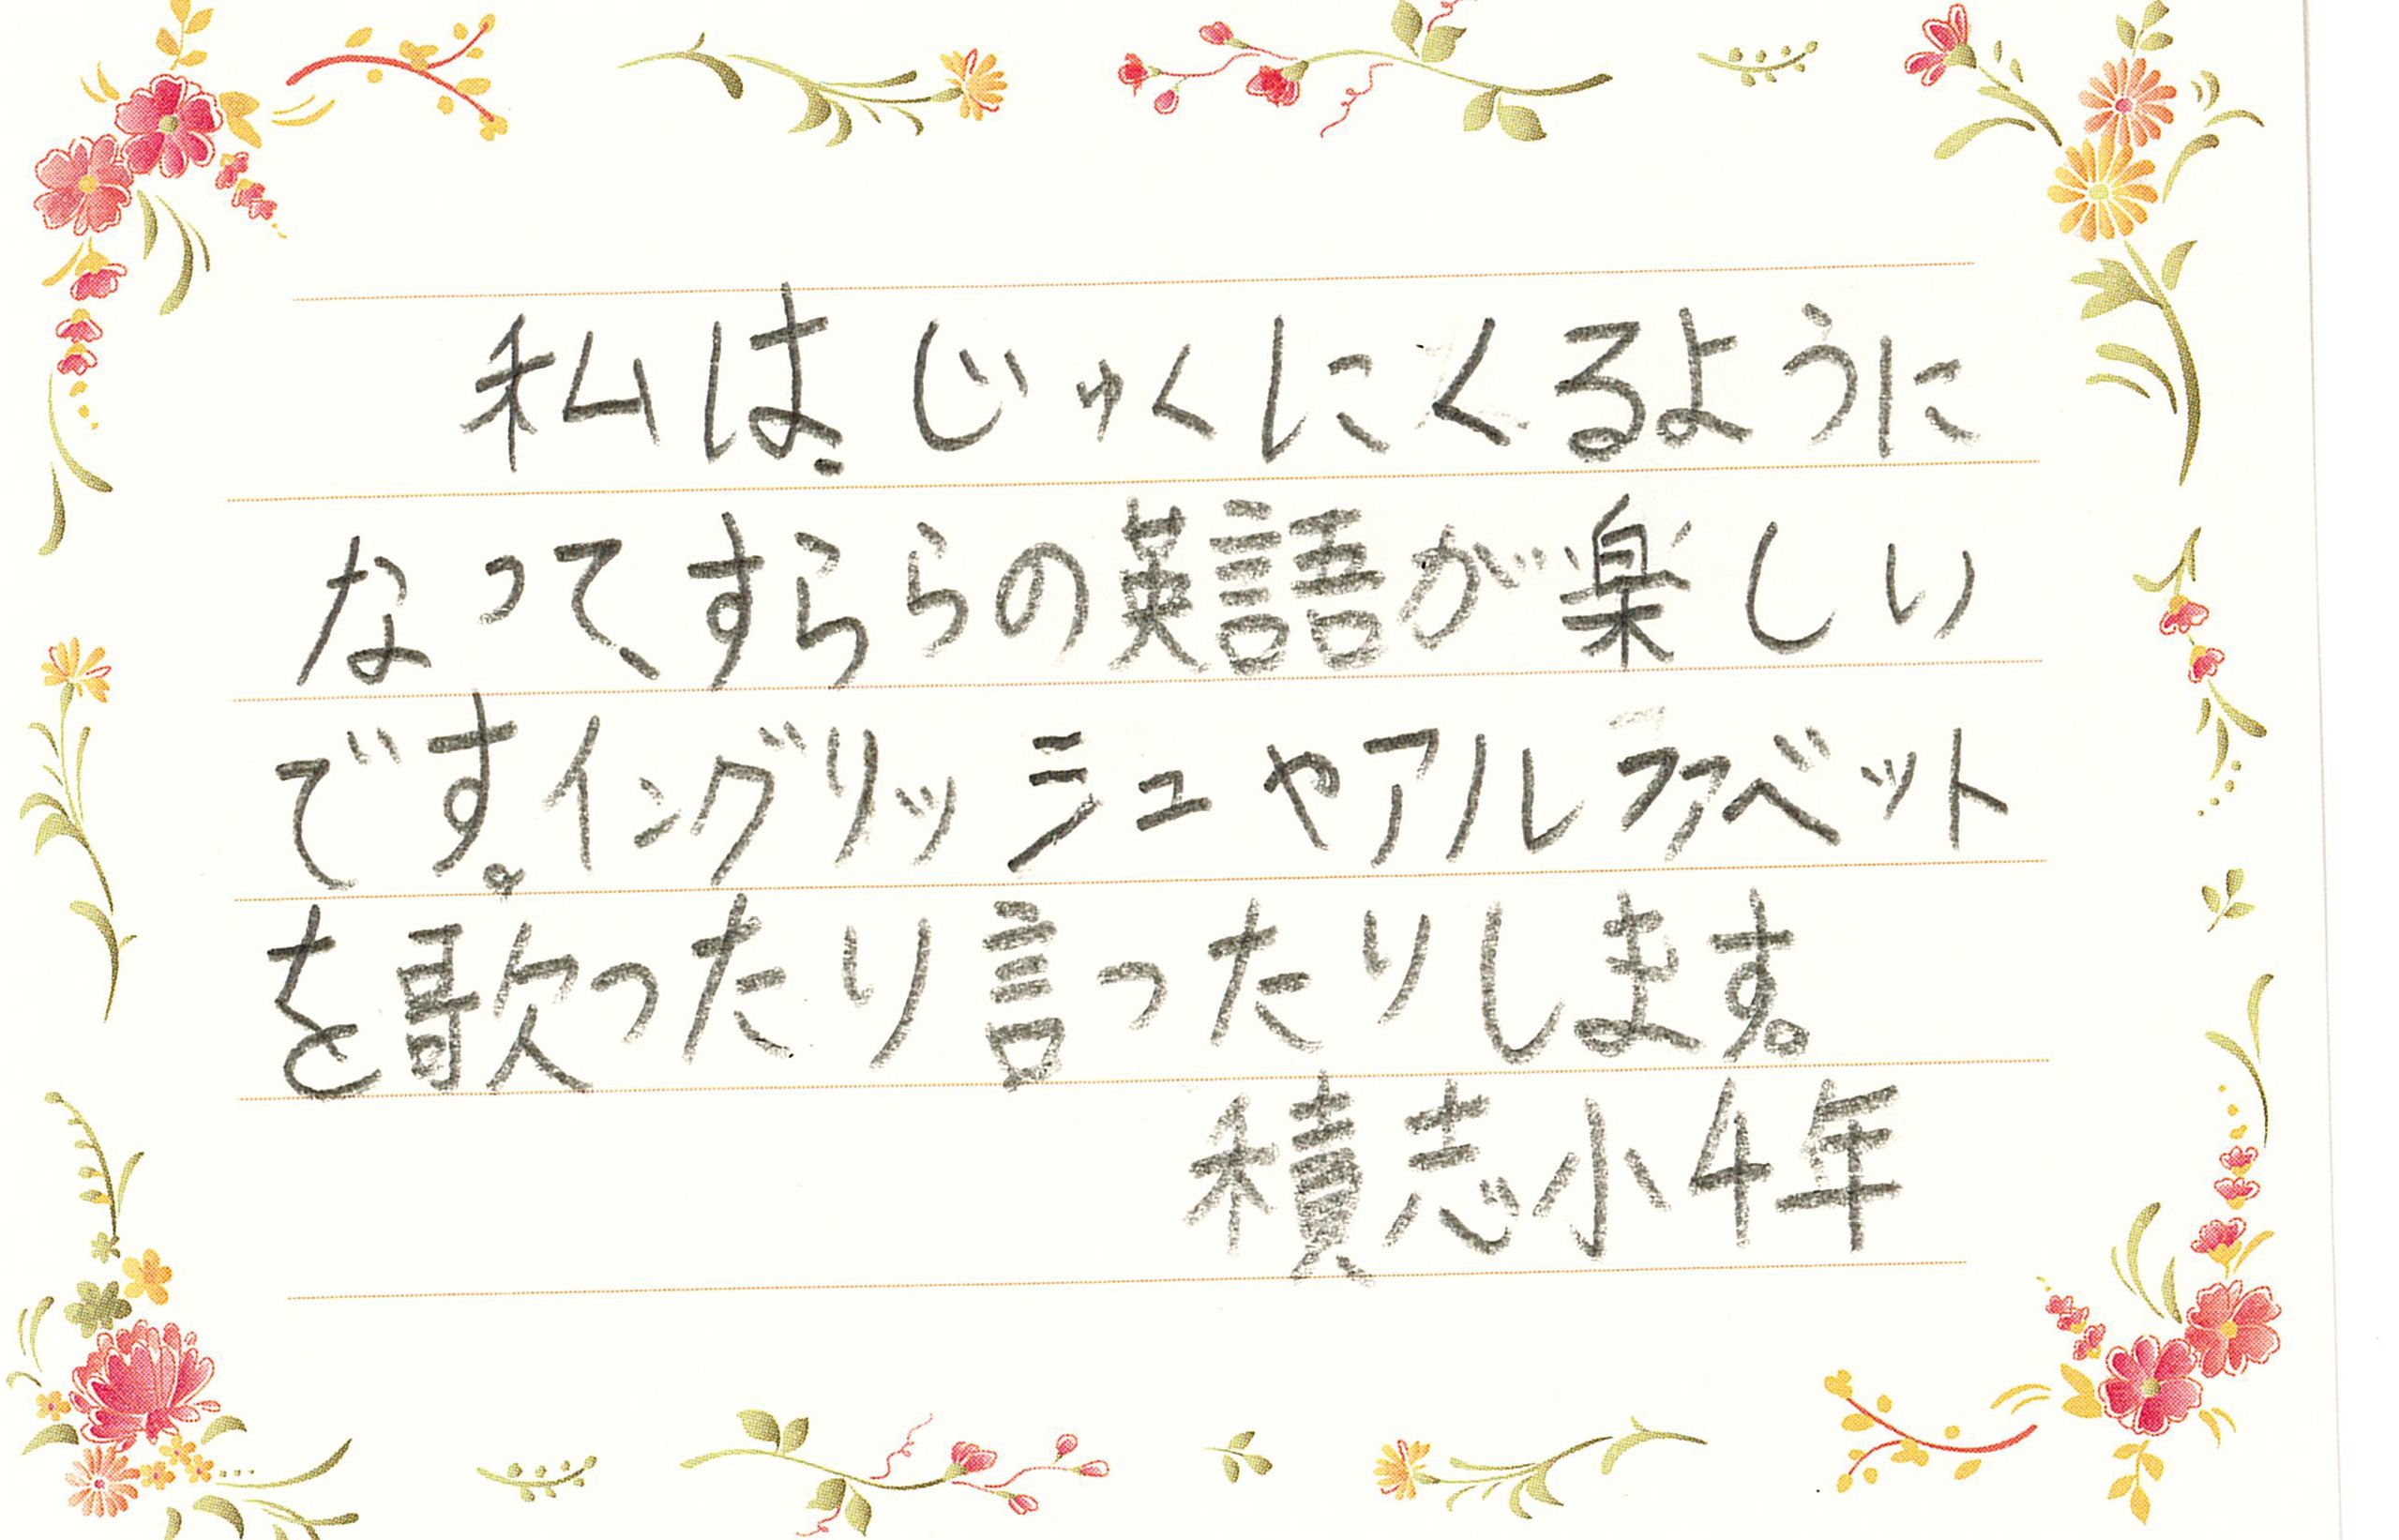 私は、じゅくにくるように
なってすららの英語が楽しい
です。イングリッシュやアルファベット
を歌ったり言ったりします。
積志小4年